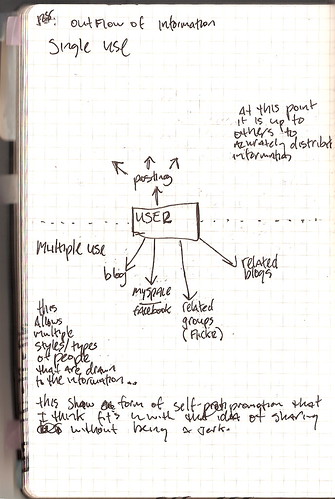 outflow of information
Single use
At this point
it is up to
others to
accurately distribute
information
posting
USER
Multiple use
blog
myspace
facebook
related
groups
(Flickr)
related
blogs
this
Allows
multiple
styles/types
of people
that are drawn
to the information...
this show form of self-promotion that
I think fits in with the idea of sharing
without being a jerk.